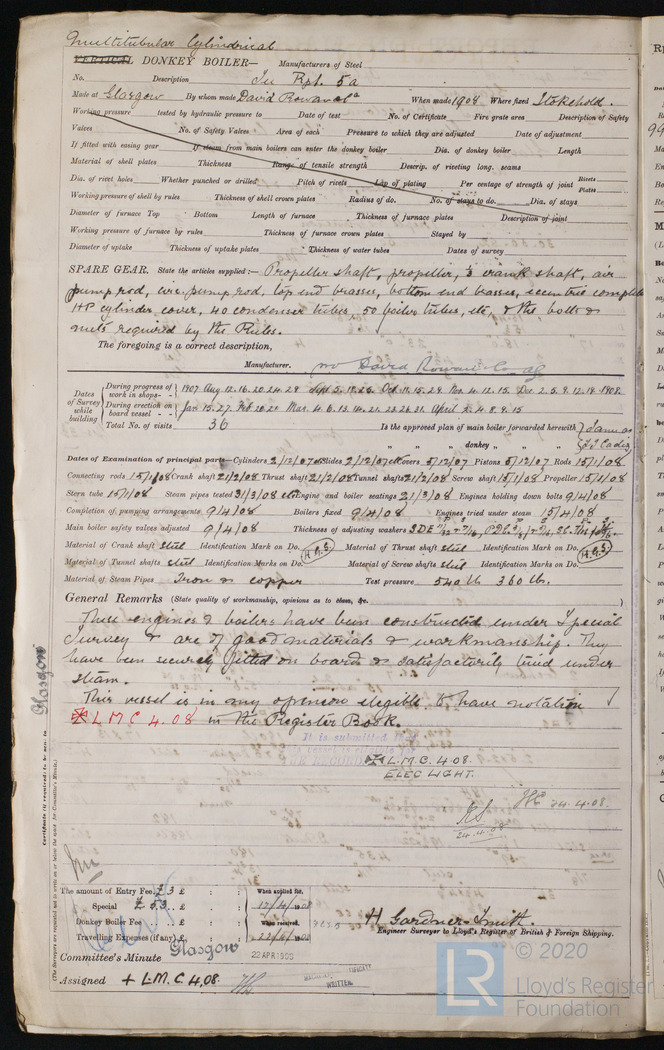 Multitubular Cylindrical
VERTICAL DONKEY BOILER— Manufacturers of Steel
No. Description See Rpt. 5a
Made at Glasgow By whom made David Rowan & Co When made 1908 Where fixed Stokehold.
Working pressure tested by hydraulic pressure to Date of test No. of Certificate Fire grate area Description of Safety
Valves No. of Safety Valves Area of each Pressure to which they are adjusted Date of adjustment
If fitted with easing gear If steam from main boilers can enter the donkey boiler Dia. of donkey boiler Length
Material of shell plates Thickness Range of tensile strength Descrip. of riveting long. seams
Dia. of rivet holes Whether punched or drilled Pitch of rivets Lap of plating Per centage of strength of joint Rivets Plates
Working pressure of shell by rules Thickness of shell crown plates Radius of do. No. of stays to do. Dia. of stays
Diameter of furnace Top Bottom Length of furnace Thickness of furnace plates Description of joint
Working pressure of furnace by rules Thickness of furnace crown plates Stayed by
Diameter of uptake Thickness of uptake plates Thickness of water tubes Dates of survey
SPARE GEAR. State the articles supplied:— Propeller shaft, propeller, crank shaft, air
pump rod, circ. pump rod, top end brasses, bottom end brasses, eccentric complete
HP cylinder cover, 40 condenser tubes, 50 boiler tubes, etc, & the bolts &
nuts required by the Rules.
The foregoing is a correct description,
Manufacturer. David Rowan & Co.
Dates of Survey while building
During progress of work in shops- - 1907 Aug. 12. 16. 20. 24. 28 Sept. 5. 19. 25. Oct. 11. 15. 29. Nov. 4. 12. 15. Dec. 2. 5. 9. 12. 19 1908.
During erection on board vessel - - Jan 15. 27. Feb Mar. 4. 6. 13. 14. 21. 23. 26. 31. April 2. 4. 8. 9. 15
Total No. of visits 36 Is the approved plan of main boiler forwarded herewith
" " " donkey " " "
Dates of Examination of principal parts—Cylinders 2/12/07 etc Slides 2/12/07 etc Covers 5/12/07 Pistons 5/12/07 Rods 15/1/08
Connecting rods 15/1/08 Crank shaft 21/2/08 Thrust shaft 21/2/08 Tunnel shafts 21/2/08 Screw shaft 15/1/08 Propeller 15/1/08
Stern tube 15/1/08 Steam pipes tested 31/3/08 etc Engine and boiler seatings 21/3/08 Engines holding down bolts 9/4/08
Completion of pumping arrangements 9/4/08 Boilers fixed 9/4/08 Engines tried under steam 15/4/08
Main boiler safety valves adjusted 9/4/08 Thickness of adjusting washers
Material of Crank shaft steel Identification Mark on Do. H.G.S Material of Thrust shaft steel Identification Mark on Do. H.G.S
Material of Tunnel shafts steel Identification Marks on Do. Material of Screw shafts steel Identification Marks on Do.
Material of Steam Pipes Iron & copper Test pressure 540 lb 360 lb.
General Remarks (State quality of workmanship, opinions as to class, &c.
These engines & boilers have been constructed under Special
Survey & are of good materials & workmanship. They
have been securely fitted on board & satisfactorily tried under
steam.
This vessel is in my opinion eligible to have notation
✠ L M C 4.08 in the Register Book.
It is submitted
✠ L.M.C. 4.08.
ELEC LIGHT.
24.4.08.
24.4.08
Glasgow
The amount of Entry Fee £ 3 : : When applied for,
Special £ 53 : : 17/4/1908
Donkey Boiler Fee £ : : When received,
Travelling Expenses (if any) £ : : 22/4/1908
H Gardner-Smith.
Engineer Surveyor to Lloyd's Register of British & Foreign Shipping.
Committee's Minute Glasgow 22 APR 1908
Assigned + L.M.C. 4,08.
WRITTEN.
© 2020
LR
Lloyd's Register
Foundation